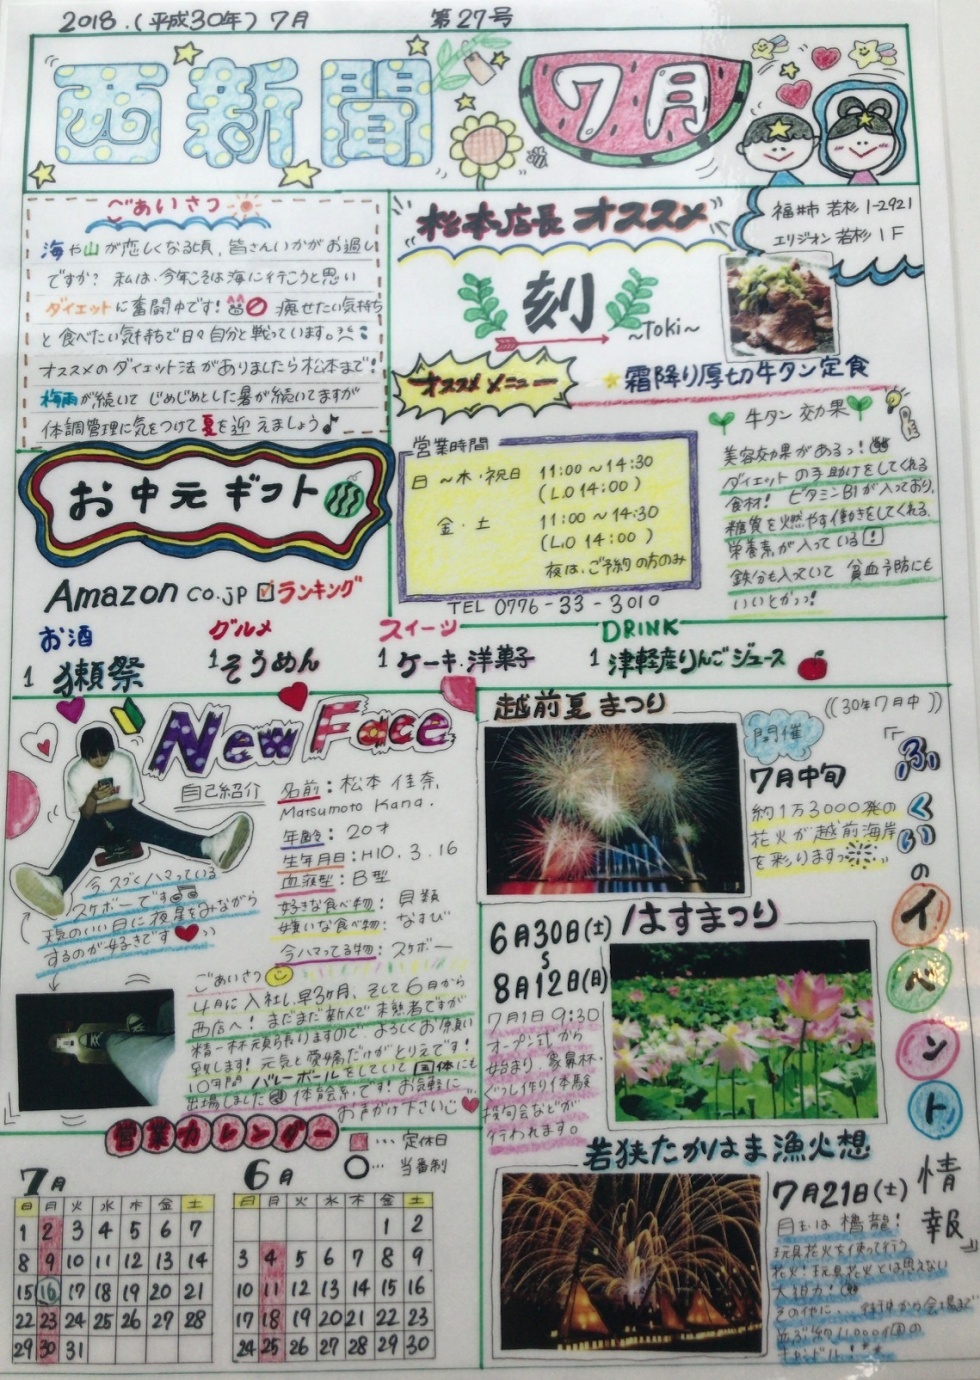 2018.(平成30年) 7月 第27号
西新聞 7月
ごあいさつ
海や山が恋しくなる頃、皆さんいかがお過し
ですか? 私は、今年こそは海に行こうと思い
ダイエットに奮闘中です! 痩せたい気持ち
と食べたい気持ちで日々自分と戦っています。
オススメのダイエット法がありましたら松本まで!
梅雨が続いて じめじめとした暑が続いてますが
体調管理に気をつけて夏を迎えましょう♪
松本店長 オススメ
福井市 若杉 1-2921
エリジオン若杉 1F
刻
~Toki~
オススメメニュー
★霜降り厚切牛タン定食
営業時間
日~木・祝日 11:00~14:30
(L.O 14:00)
金・土 11:00~14:30
(L.O 14:00)
夜は、ご予約の方のみ
TEL 0776-33-3010
牛タン効果
美容効果があるっ!
ダイエットの手助けをしてくれる
食材! ビタミンB1が入っており、
糖質を燃やす働きをしてくれる、
栄養素が入っている!
鉄分も入っていて 貧血予防にも
いいとかっ!
お中元ギフト
Amazon co.jp ☑ランキング
お酒 グルメ スイーツ DRINK
1 獺祭 1 そうめん 1 ケーキ・洋菓子 1 津軽産りんごジュース
New Face
自己紹介
名前:松本 佳奈
Matsumoto Kana.
年齢:20才
生年月日:H10.3.16
血液型:B型
好きな食べ物:貝類
嫌いな食べ物:なすび
今ハマってる物:スケボー
今、スゴくハマっている
スケボーです
天気のいい日に夜星をみながら
するのが好きです
ごあいさつ
4月に入社し、早3ヶ月、そして6月から
西店へ! まだまだ新人で未熟者ですが
精一杯頑張りますので、よろしくお願い
致します! 元気と愛嬌だけがとりえです!
10年間 バレーボールをしていて国体にも
出場しました 体育会系です! お気軽に
お声がけ下さい
営業カレンダー
…定休日
…当番制
7月
日 月 火 水 木 金 土
1 2 3 4 5 6 7
8 9 10 11 12 13 14
15 16 17 18 19 20 21
22 23 24 25 26 27 28
29 30 31
6月
日 月 火 水 木 金 土
1 2
3 4 5 6 7 8 9
10 11 12 13 14 15 16
17 18 19 20 21 22 23
24 25 26 27 28 29 30
『ふくいのイベント情報』
((30年7月中))
越前夏まつり
開催
7月中旬
約1万3000発の
花火が越前海岸
を彩りますっ
はすまつり
6月30日(土)
8月12日(日)
7月1日 9:30
オープン式から
始まり、象鼻杯・
ぐっし作り体験
投句会などが
行われます。
若狭たかはま漁火想
7月21日(土)
目玉は 櫓龍!
玩具花火を使って行う
花火! 玩具花火とは思えない
大迫力!
その他に…
並ぶ約11000個の
キャンドル!